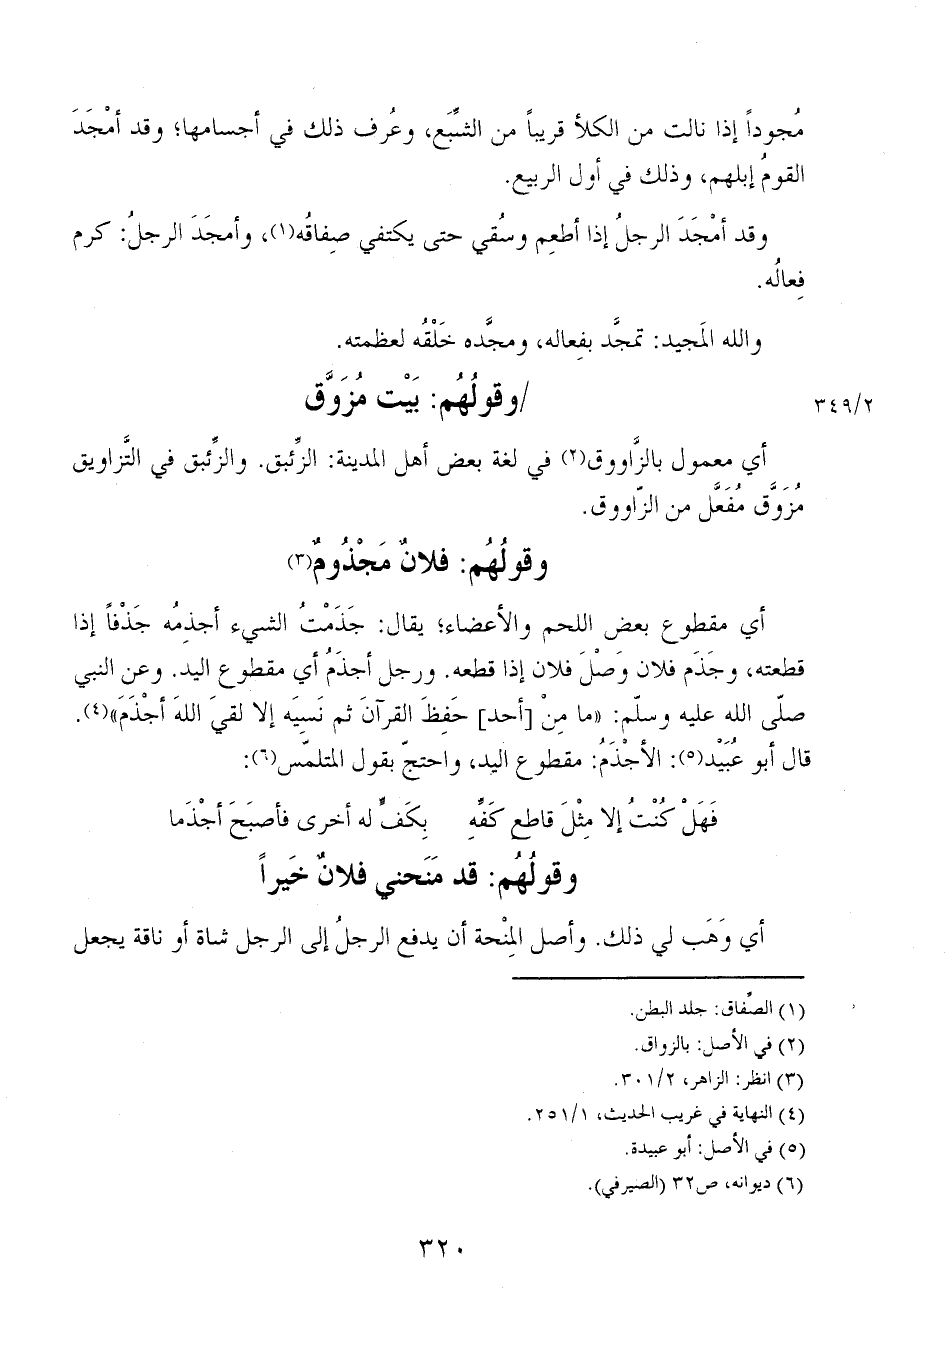 مُجوداً إذا نالت من الكلأ قريباً من الشِّبَع، وعُرف ذلك في أجسامها؛ وقد أمْجَدَ
القومُ إبلهم، وذلك في أول الربيع.
وقد أمْجَدَ الرجلُ إذا أطعِم وسُقي حتى يكتفي صِفاقُه(١)، وأمجَدَ الرجلُ: كرم
فِعالُه.
والله المَجيد: تمجَّد بفِعاله، ومجَّده خَلْقُه لعظمته.
/وقولُهُم: بَيْت مُزَوَّق
٣٤٩/٢
أي معمول بالزَّاووق(٢) في لغة بعض أهل المدينة: الزِّئبق. والزِّئبق في التَّزاويق
مُزَوَّق مُفَعَّل من الزّاووق.
وقولُهُم: فلانٌ مَجْذُومٌ(٣)
أي مقطوع بعض اللحم والأعضاء؛ يقال: جَذَمْتُ الشيء أجذِمُه جَذْفاً إذا
قطعته، وجَذَم فلان وَصْلَ فلان إذا قطعه. ورجل أجذَمُ أي مقطوع اليد. وعن النبي
صلّى الله عليه وسلّم: «ما مِنْ [أحد] حَفِظَ القرآنَ ثم نَسِيَه إلا لقيَ اللهَ أجْذَمَ»(٤).
قال أبو عُبَيْد(٥): الأجْذَمُ: مقطوع اليد، واحتجّ بقول المتلمّس(٦):
فَهَلْ كُنْتُ إلا مِثْلَ قاطعِ كَفِّهِ بِكَفٍّ له أخرى فأصبَحَ أجْذَما
وقولُهُم: قد مَنَحني فلانٌ خَيراً
أي وَهَب لي ذلك. وأصل المِنْحة أن يدفع الرجلُ إلى الرجل شاة أو ناقة يجعل
(١) الصِّفاق: جلد البطن.
(٢) في الأصل: بالزواق.
(٣) انظر: الزاهر، ٣٠١/٢.
(٤) النهاية في غريب الحديث، ٢٥١/١.
(٥) في الأصل: أبو عبيدة.
(٦) ديوانه، ص٣٢ (الصيرفي).
٣٢٠